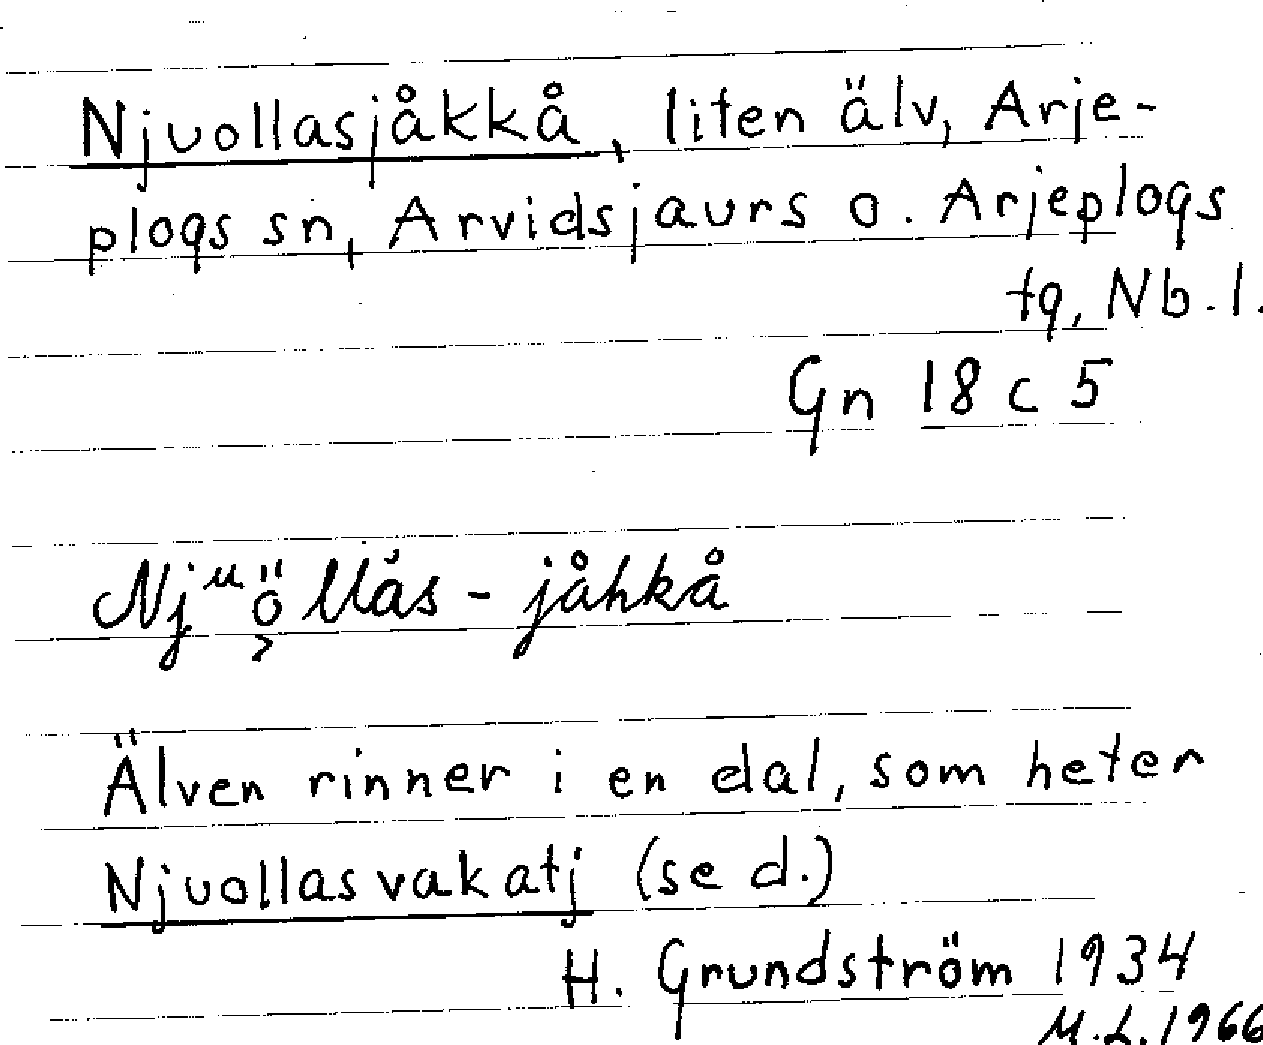 Njuollasjåkkå, liten älv, Arje-
plogs sn, Arvidsjaurs o. Arjeplogs
tg, Nb. l.
Gn 18 c 5
Njᵘö̬llás - jåhkå
Älven rinner i en dal, som heter
Njuollasvakatj (se d.)
H. Grundström 1934
M.L. 1966